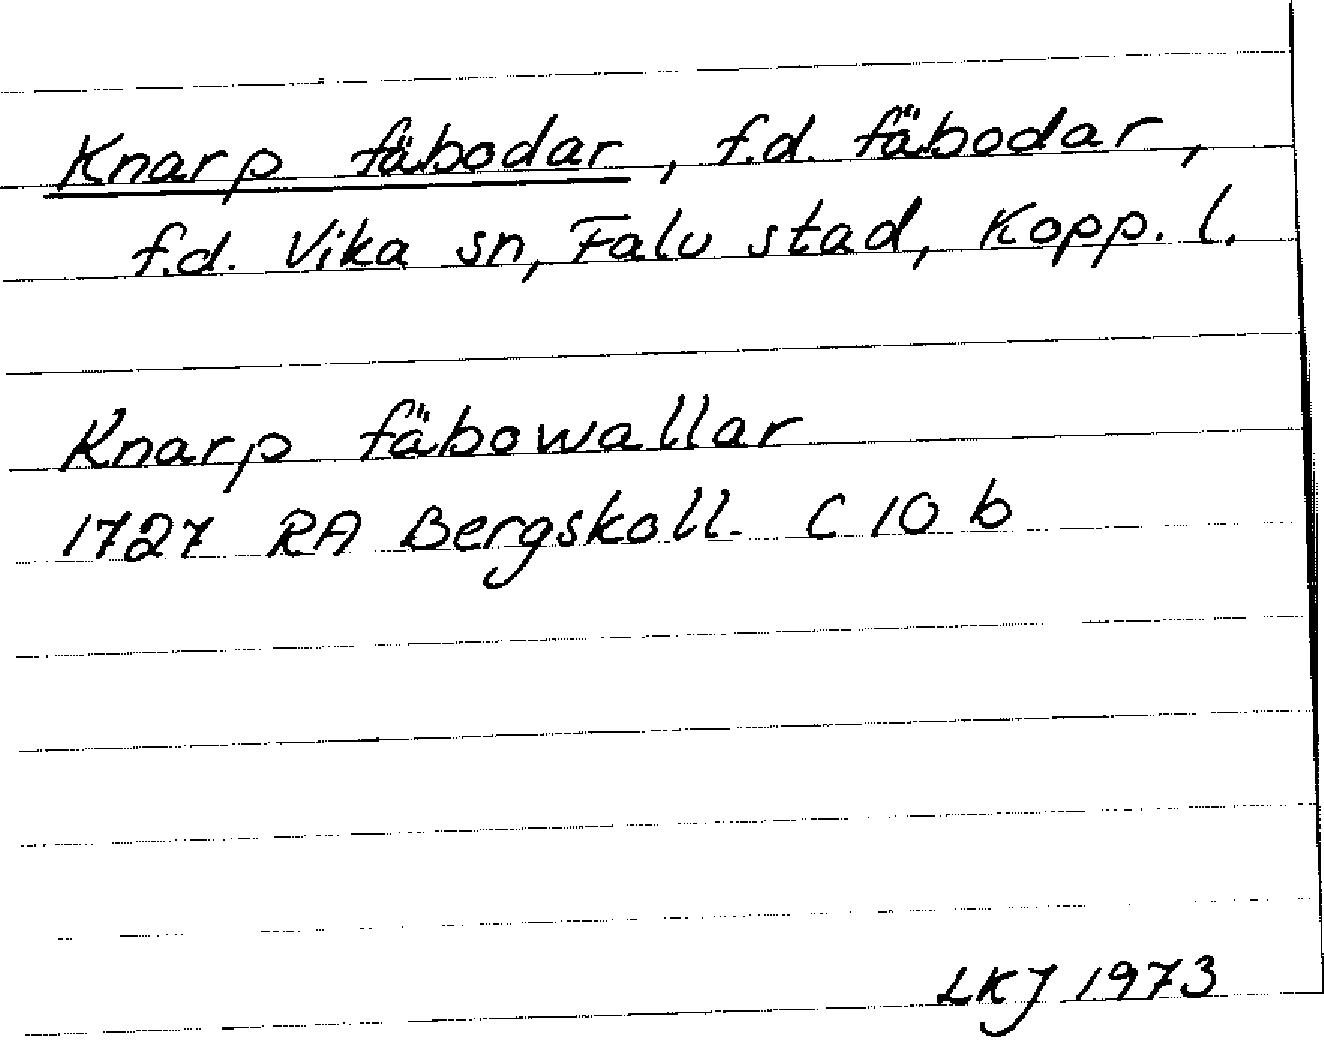 Knarp fäbodar, f.d. fäbodar,
f.d. Vika sn, Falu stad, Kopp. l.
Knarp fäbowallar
1727 RA Bergskoll. C 10 b
LKJ 1973